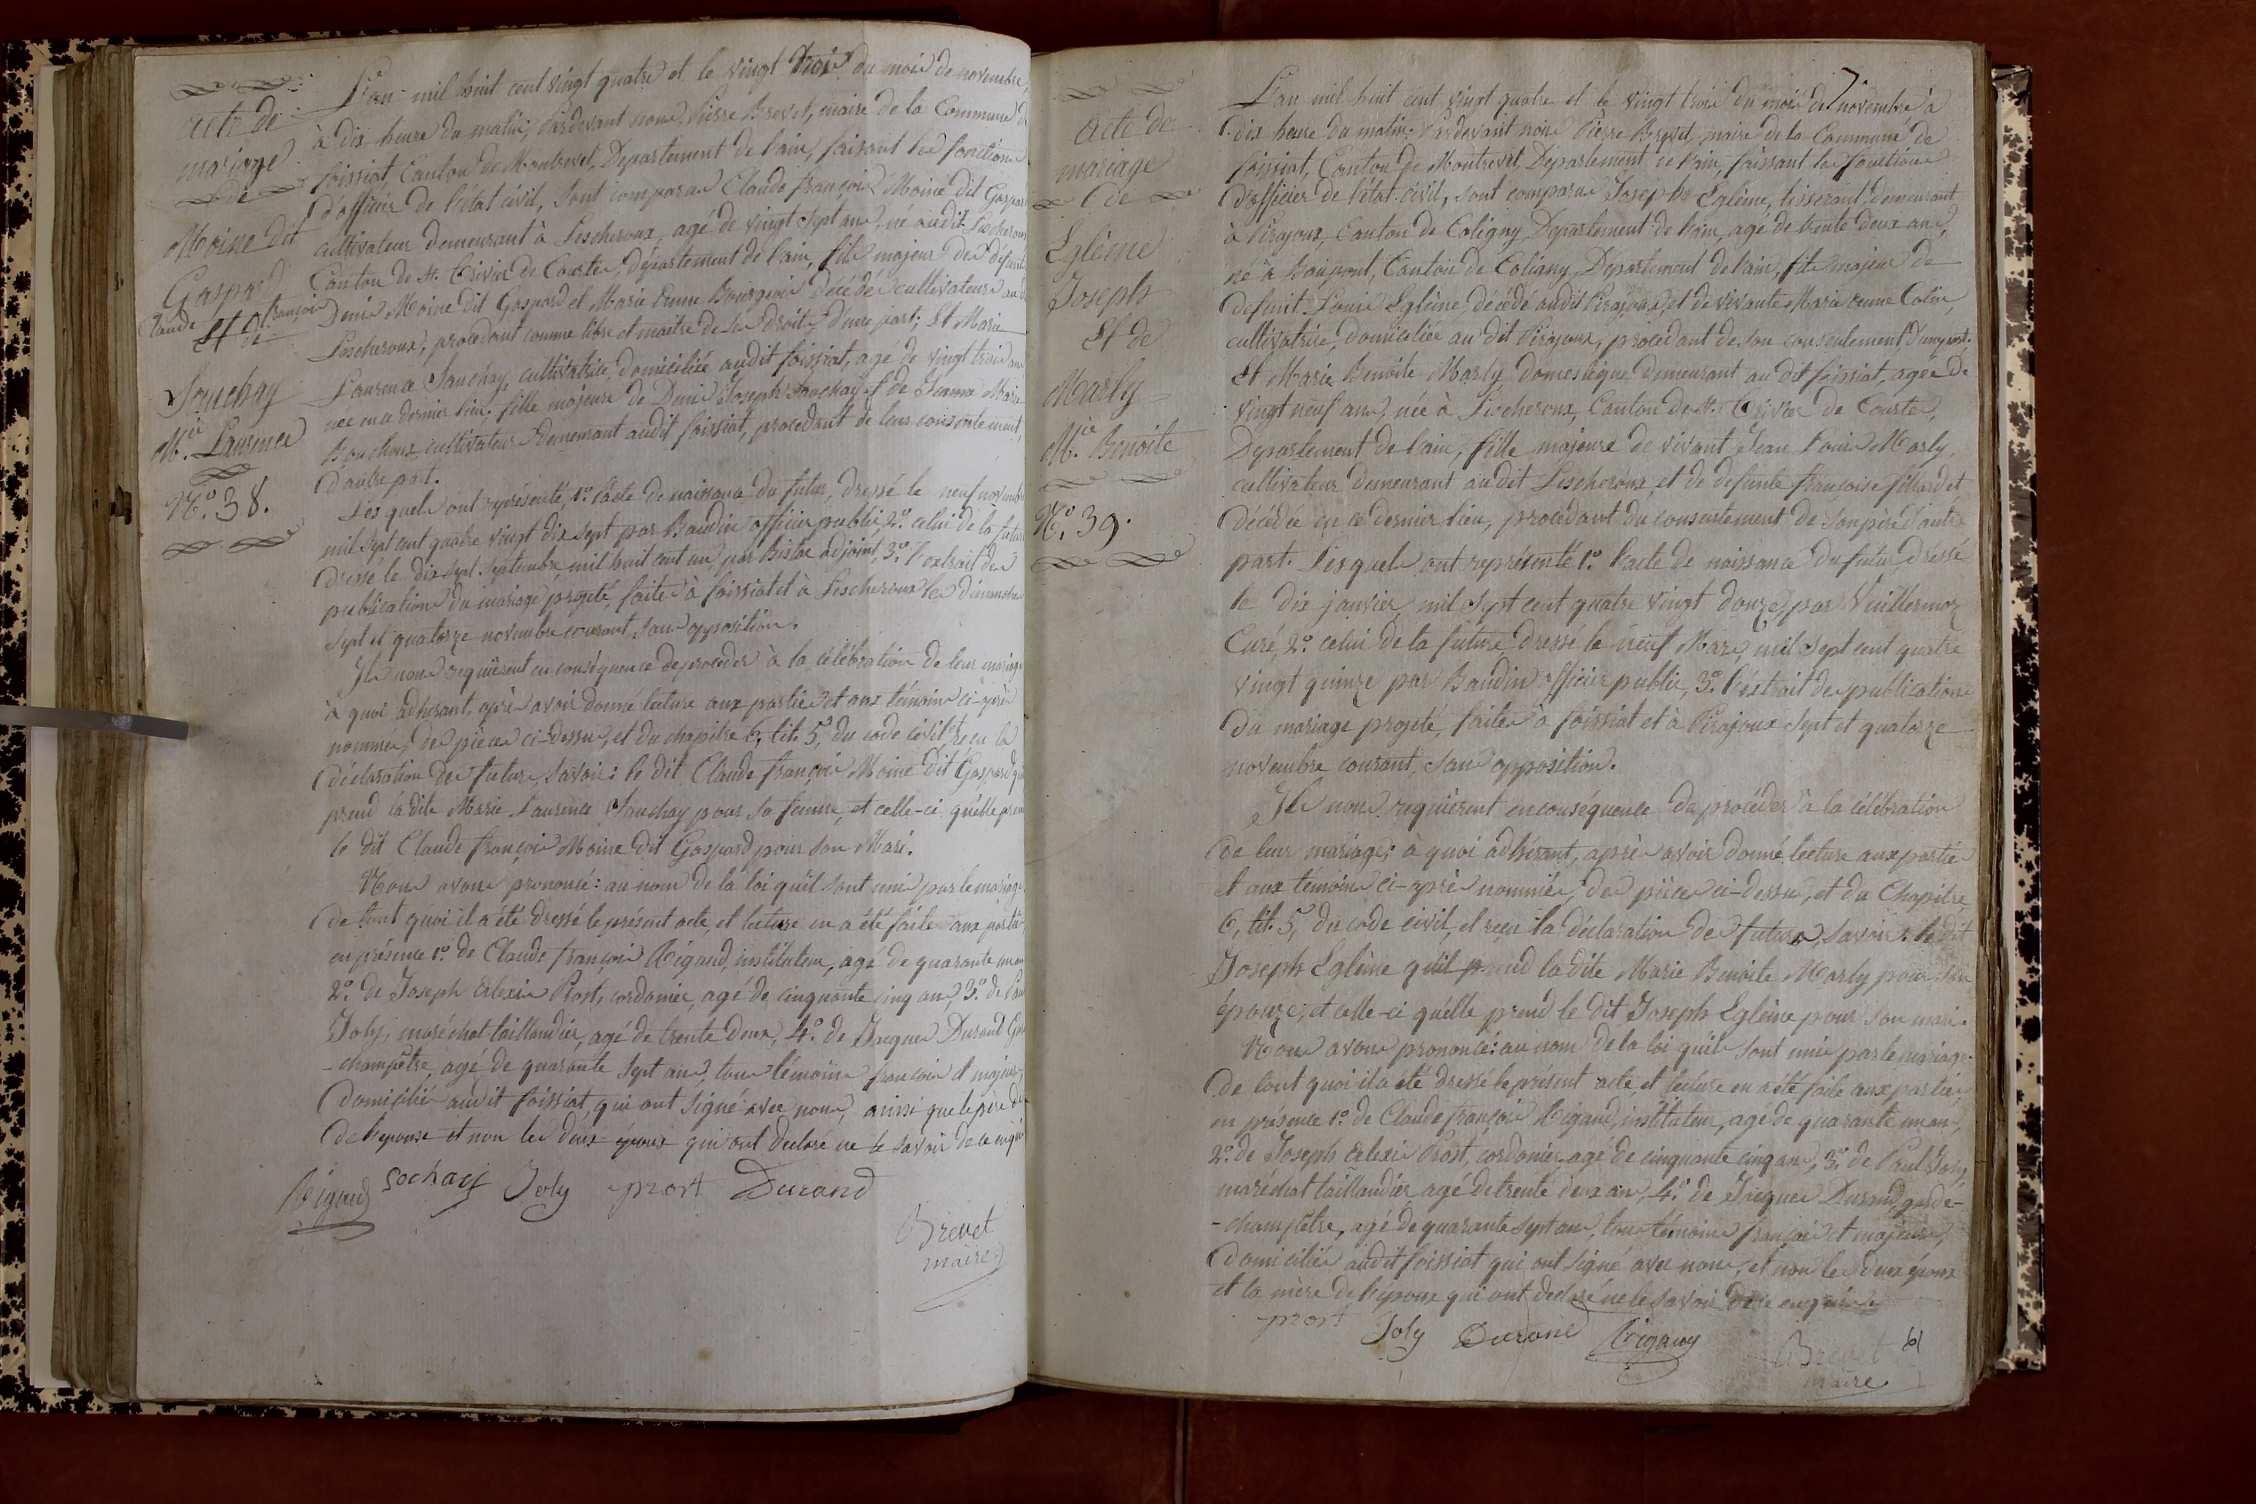 acte de
mariage
de
Moine dit
Gaspard
Claude françois
Et de
Souchay
M.ie Laurence
N.o 38.
L'an mil huit cent vingt quatre et le vingt trois du mois de novembre,
à dix heure du matin; Pardevant nous Pierre Brevet, maire de la Commune de
foissiat, Canton de Montrevel, Departement de l'ain, faisant les fonctions
d'officier de l'état civil, sont comparus Claude françois Moine dit Gaspard
cultivateur demeurant à Lescheroux, agé de vingt sept ans, né audit Lescheroux
Canton de St. Trivier de Courtes, département de l'ain, fils majeur des défunts
Denis Moine dit Gaspard et Marie Anne Bourgeois décédés cultivateurs audit
Lescheroux, procedant comme libre et maitre de ses droits, d'une part; Et Marie
Laurence Souchay, cultivatrice, domiciliée audit foissiat, agée de vingt trois ans
née en ce dernier lieu, fille majeure de Denis Joseph Souchay et de Jeanne Marie
Bouchoux cultivateurs demeurant audit foissiat, procedant de leur consentement,
d'autre part.
Lesquels ont représenté, 1.o l'acte de naissance du futur, dressé le neuf novembre
mil sept cent quatre vingt dix sept par Baudin officier public, 2.o celui de la future
dressé le dix sept septembre mil huit cent un par adjoint, 3.o l'extrait des
publications du mariage projeté, faites à foissiat et à Lescheroux les dimanches
sept et quatorze novembre courant, sans opposition.
Ils nous requièrent en conséquence de proceder à la célébration de leur mariage
à quoi adhérant, après avoir donné lecture aux parties et aux témoins ci-après
nommés, des pièces ci-dessus, et du chapitre 6, tit. 5, du code civil, reçu la
déclaration des futurs, savoir: le dit Claude françois Moine dit Gaspard qu'il
prend la dite Marie Laurence Souchay pour sa femme, et celle-ci qu'elle prend
le dit Claude françois Moine dit Gaspard pour son Mari.
Nous avons prononcé: au nom de la loi qu'ils sont unis par le mariage
de tout quoi il a été dressé le présent acte, et lecture en a été faite aux parties,
en présence 1.o de Claude françois Rigaud, instituteur, agé de quarante un ans
2.o de Joseph Alexis Prost, cordonier, agé de cinquante cinq ans, 3.o de Paul
Joly, maréchal taillandier, agé de trente deux, 4.o de Jacques Durand Garde
-champêtre, agé de quarante sept ans, tous témoins françois et majeurs,
domiciliés audit foissiat, qui ont signé avec nous, ainsi que le père de
de l'epouse et non les deux époux qui ont declaré ne le savoir de ce enquis
Rigaud Sochay Joly prost Durand
Brevet
maire
Acte de
mariage
de
Eglème
Joseph
Et de
Marly
M.ie Benoite
N.o 39.
L'an mil huit cent vingt quatre et le vingt trois du mois de novembre à
dix heure du matin; Pardevant nous Pierre Brevet, maire de la Commune de
foissiat, Canton de Montrevel, Département de l'ain, faissant les fonctions
d'officier de l'état civil, sont comparus Joseph Eglème, tisserant, demeurant
à Pirajoux, Canton de Coligny, Département de l'ain, agé de trente deux ans,
né à Baupont, Canton de Coligny, Departement de l'ain, fils majeur de
defunt Louis Eglème, décédé audit Pirajoux, et de vivante Marie Anne Colin,
cultivatrice, domiciliée au dit Pirajoux, procedant de son consentement, d'une part.
Et Marie Benoite Marly domestique demeurant au dit foissiat, agée de
vingt neuf ans, née à Lescheroux, Canton de St. Trivier de Courtes,
Département de l'ain, fille majeure de vivant Jean Louis Marly,
cultivateur demeurant au dit Lescheroux, et de defunte françoise fillardet
décédée en ce dernier lieu, procedant du consentement de son père d'autre
part. Lesquels ont représenté 1.o l'acte de naissance du futur dressé
le dix janvier mil sept cent quatre vingt douze, par Vuillermoz
Curé, 2.o celui de la future, dressé le neuf Mars, mil sept cent quatre
vingt quinze par Baudin officier public, 3.o l'extrait des publications
du mariage projeté, faites à foissiat et à Pirajoux sept et quatorze
novembre courant, sans opposition.
Ils nous requièrent en conséquence de procéder à la célébration
de leur mariage; à quoi adhérant, après avoir donné lecture aux parties
et aux témoins ci-après nommés, des pièces ci-dessus, et du Chapitre
6, tit. 5, du code civil, et reçu la déclaration des futurs, savoir: le dit
Joseph Eglème qu'il prend la dite Marie Benoite Marly pour son
épouze, et celle-ci qu'elle prend le dit Joseph Eglème pour son mari.
Nous avons prononcé: au nom de la loi qu'ils sont unis par le mariage.
de tout quoi il a été dressé le présent acte, et lecture en a été faite aux parties,
en présence 1.o de Claude françois Rigaud, instituteur, agé de quarante un ans,
2.o de Joseph Alexis Prost, cordonier agé de cinquante cinq ans, 3.o de Paul Joly,
maréchal taillandier agé de trente deux ans, 4.o de Jacques Durand, garde-
-champêtre, agé de quarante sept ans, tous témoins français et majeurs,
domiciliés audit foissiat qui ont signé avec nous, et non les deux époux
et la mère de l'époux qui ont declaré ne le savoir de ce enquis
prost Joly Durand Rigaud
Brevet
maire